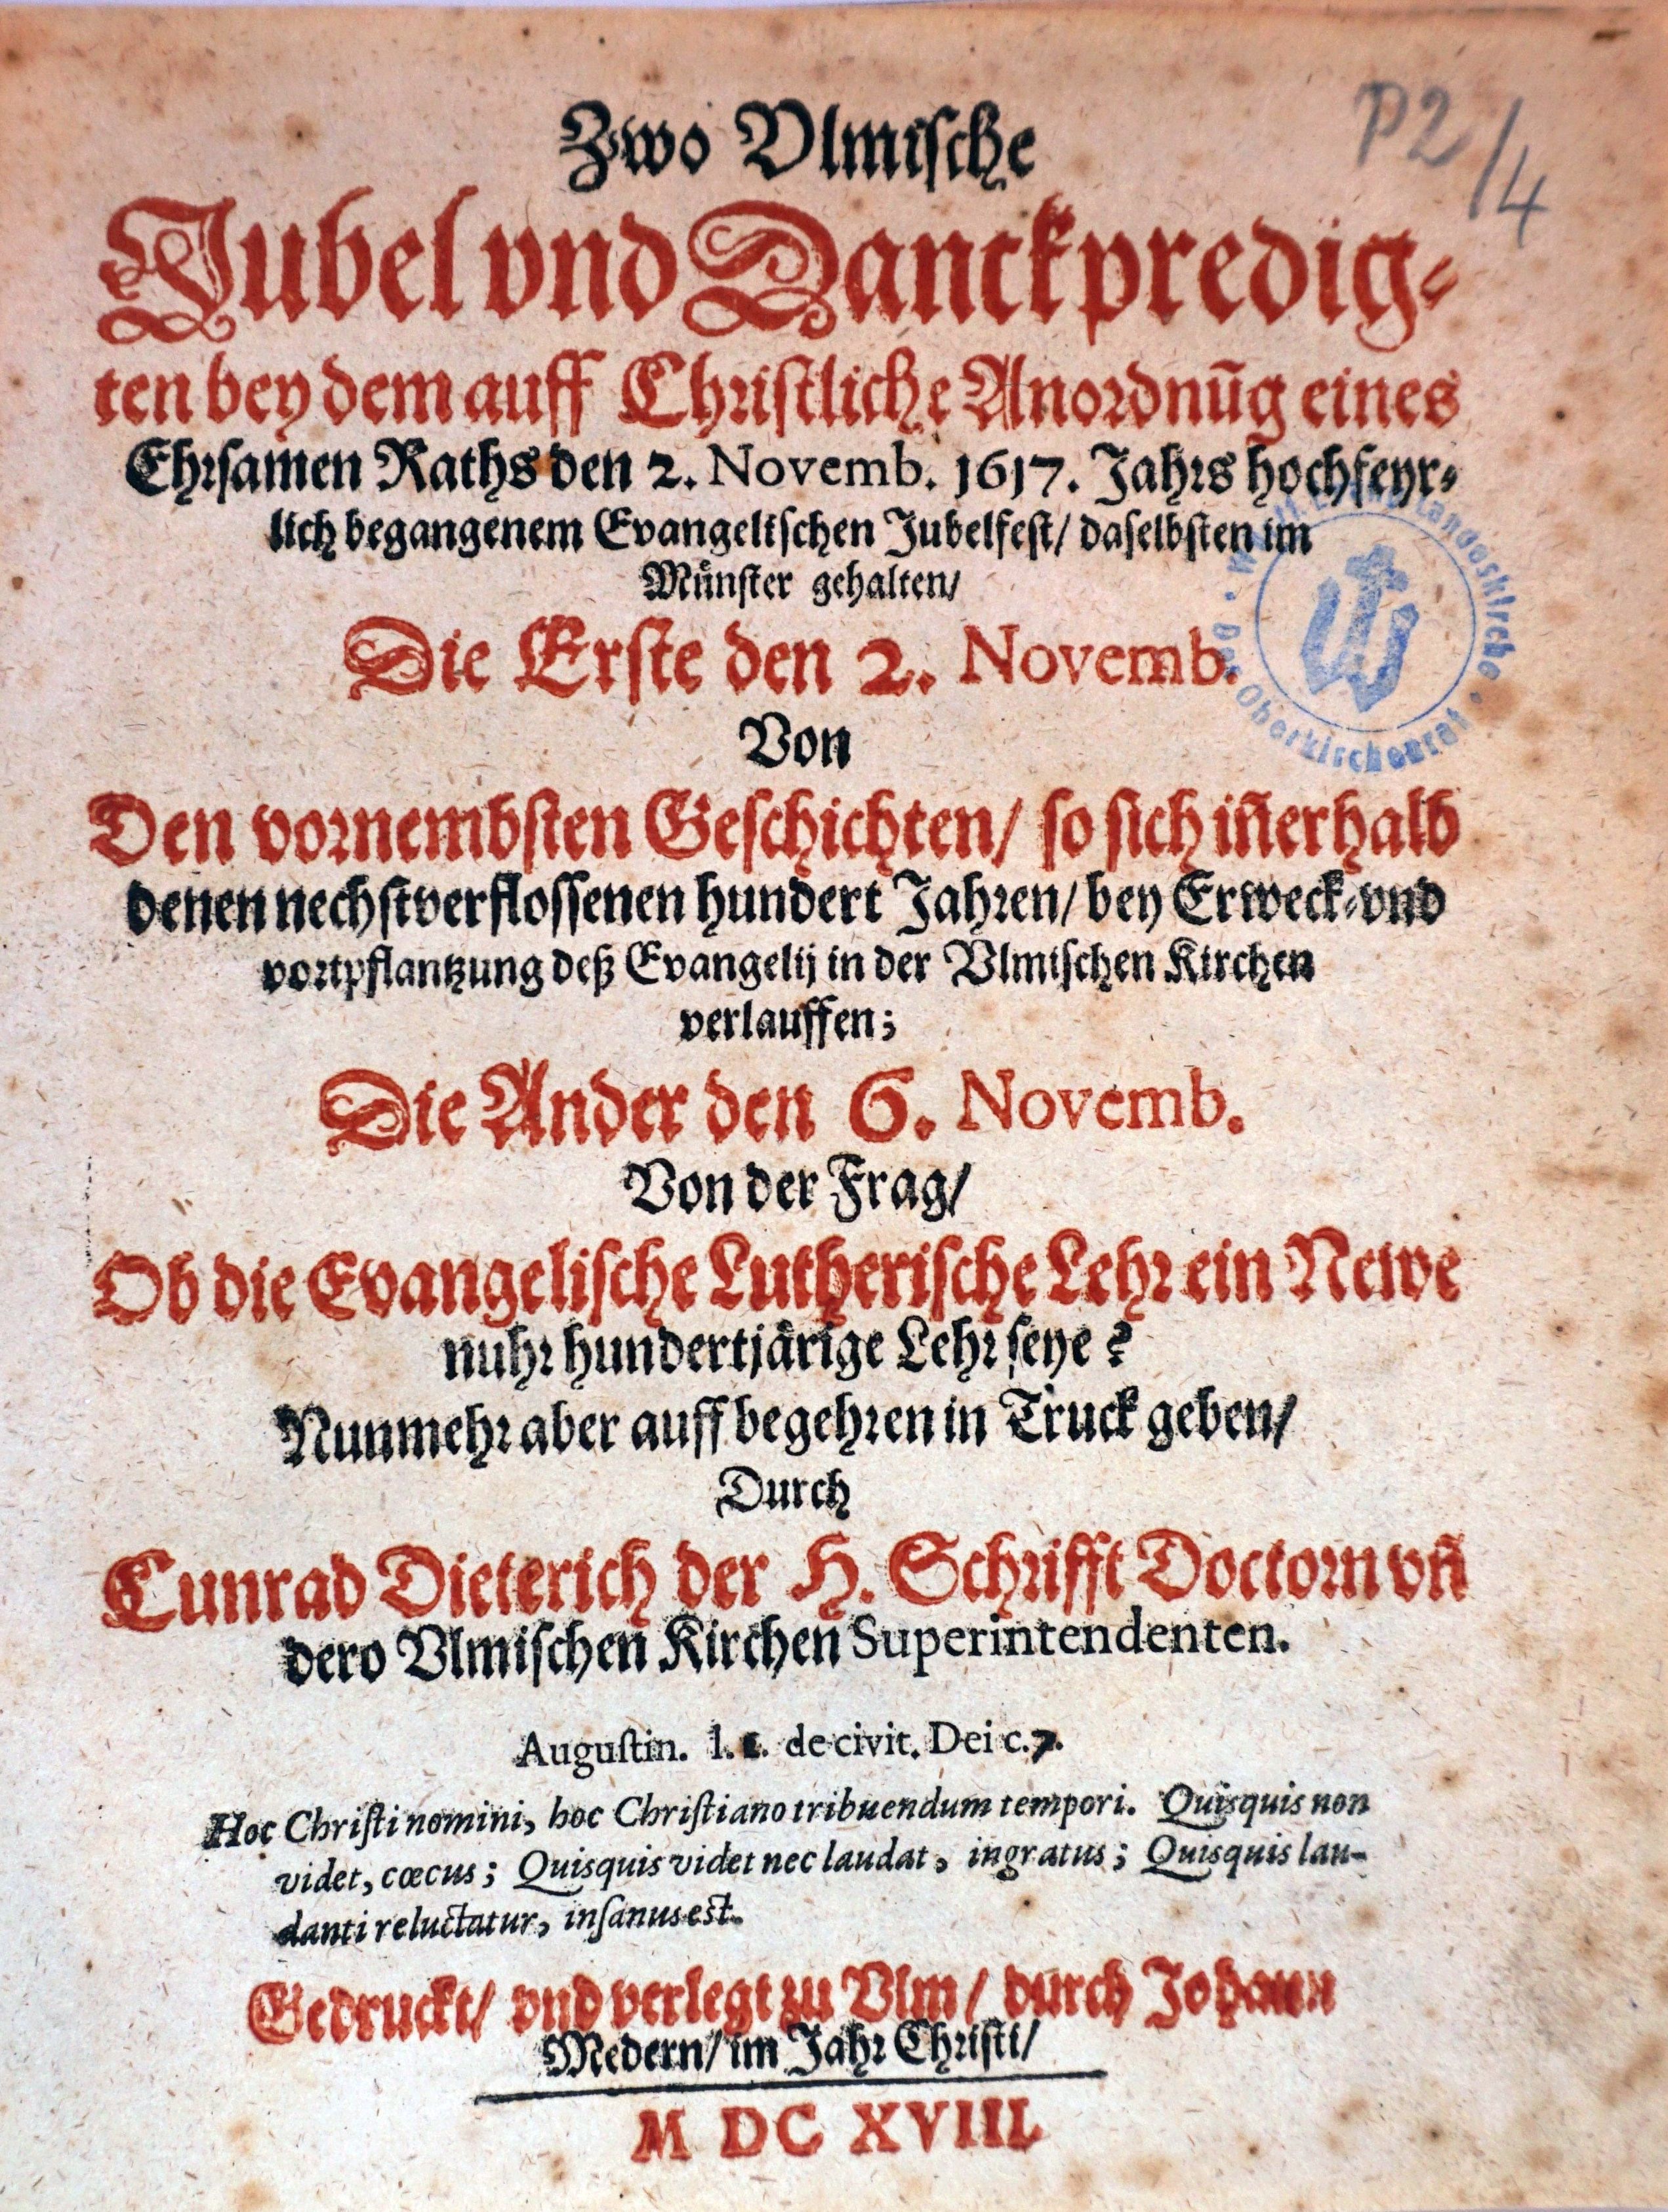 P2/4
Zwo Vlmische
Jubel vnd Danckpredig-
ten bey dem auff Christliche Anordnūg eines
Ehrsamen Raths den 2. Novemb. 1617. Jahrs hochfeyr-
lich begangenem Evangelischen Jubelfest/ daselbsten im
Münster gehalten/
Die Erste den 2. Novemb.
Von
Den vornembsten Geschichten/ so sich iñerhalb
denen nechstverflossenen hundert Jahren/ bey Erweck-vnd
vortpflantzung deß Evangelij in der Vlmischen Kirchen
verlauffen;
Die Ander den 6. Novemb.
Von der Frag/
Ob die Evangelische Lutherische Lehr ein Newe
nuhr hundertjärige Lehr seye?
Nunmehr aber auff begehren in Truck geben/
Durch
Cunrad Dieterich der H. Schrifft Doctorn vñ
dero Vlmischen Kirchen Superintendenten.
Augustin. l. 1. de civit. Dei c. 7.
Hoc Christi nomini, hoc Christiano tribuendum tempori. Quisquis non
videt, cœcus; Quisquis videt nec laudat, ingratus; Quisquis lau-
danti reluctatur, insanus est.
Gedruckt/ vnd verlegt zu Vlm/ durch Johann
Medern/ im Jahr Christi/
M DC XVIII.
Landeskirche
Oberkirchenrat